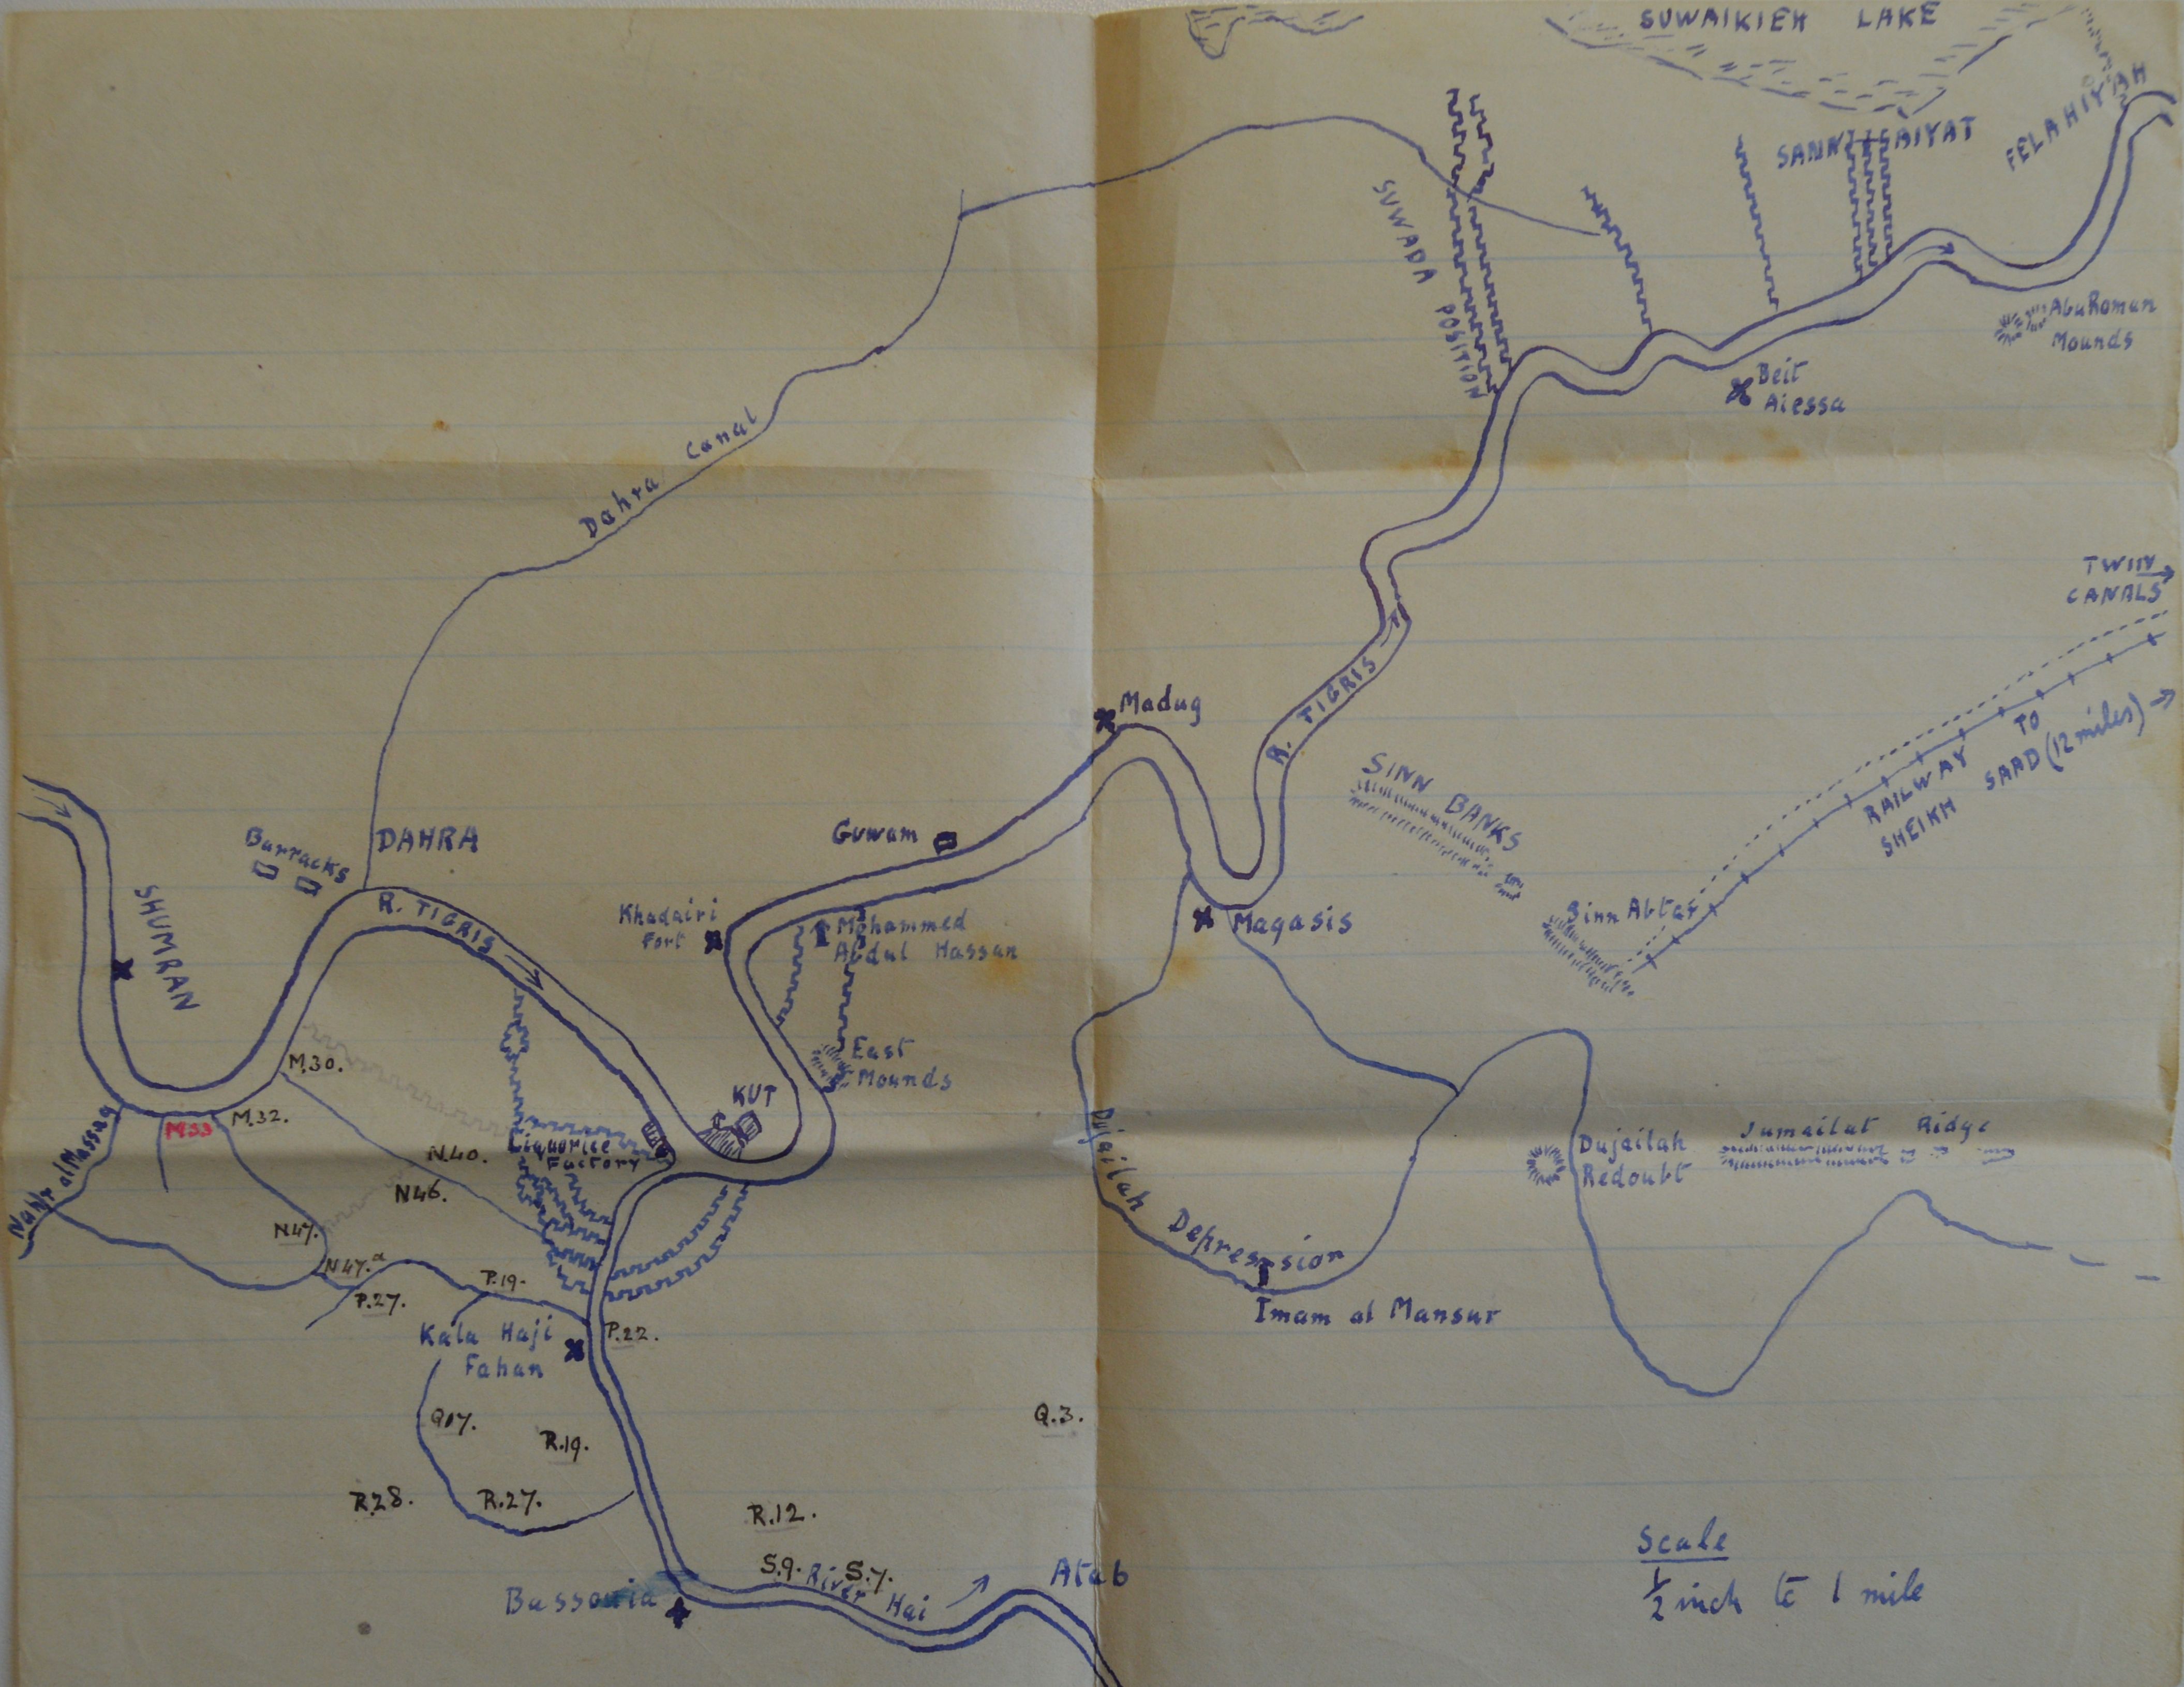 SUWAIKIEH LAKE
FELAHIYAH
SANNAIYAT
SUWADA POSITION
Abu Roman
Mounds
Beit
Aiessa
Dahra Canal
TWIN
CANALS
R. TIGRIS
Madug
SINN BANKS
RAILWAY TO
SHEIKH SAAD (12 miles)
Sinn Abtar
Barracks
DAHRA
Guwam
SHUMRAN
R. TIGRIS
Khadairi
Fort
Mohammed
Abdul Hassan
Magasis
East
Mounds
M.30.
KUT
M.33
M.32.
Nahr al Massag
N.40.
Liquorice
Factory
N46.
N.47.
N47.a
P.19.
P.27.
Dujailah Depression
Dujailah
Redoubt
Jumailat Ridge
Imam al Mansur
Kala Haji
Fahan
P.22.
Q17.
R.19.
Q.3.
R.28.
R.27.
R.12.
S.9. S.7.
River Hai
Atab
Bassouia
Scale
1/2 inch to 1 mile